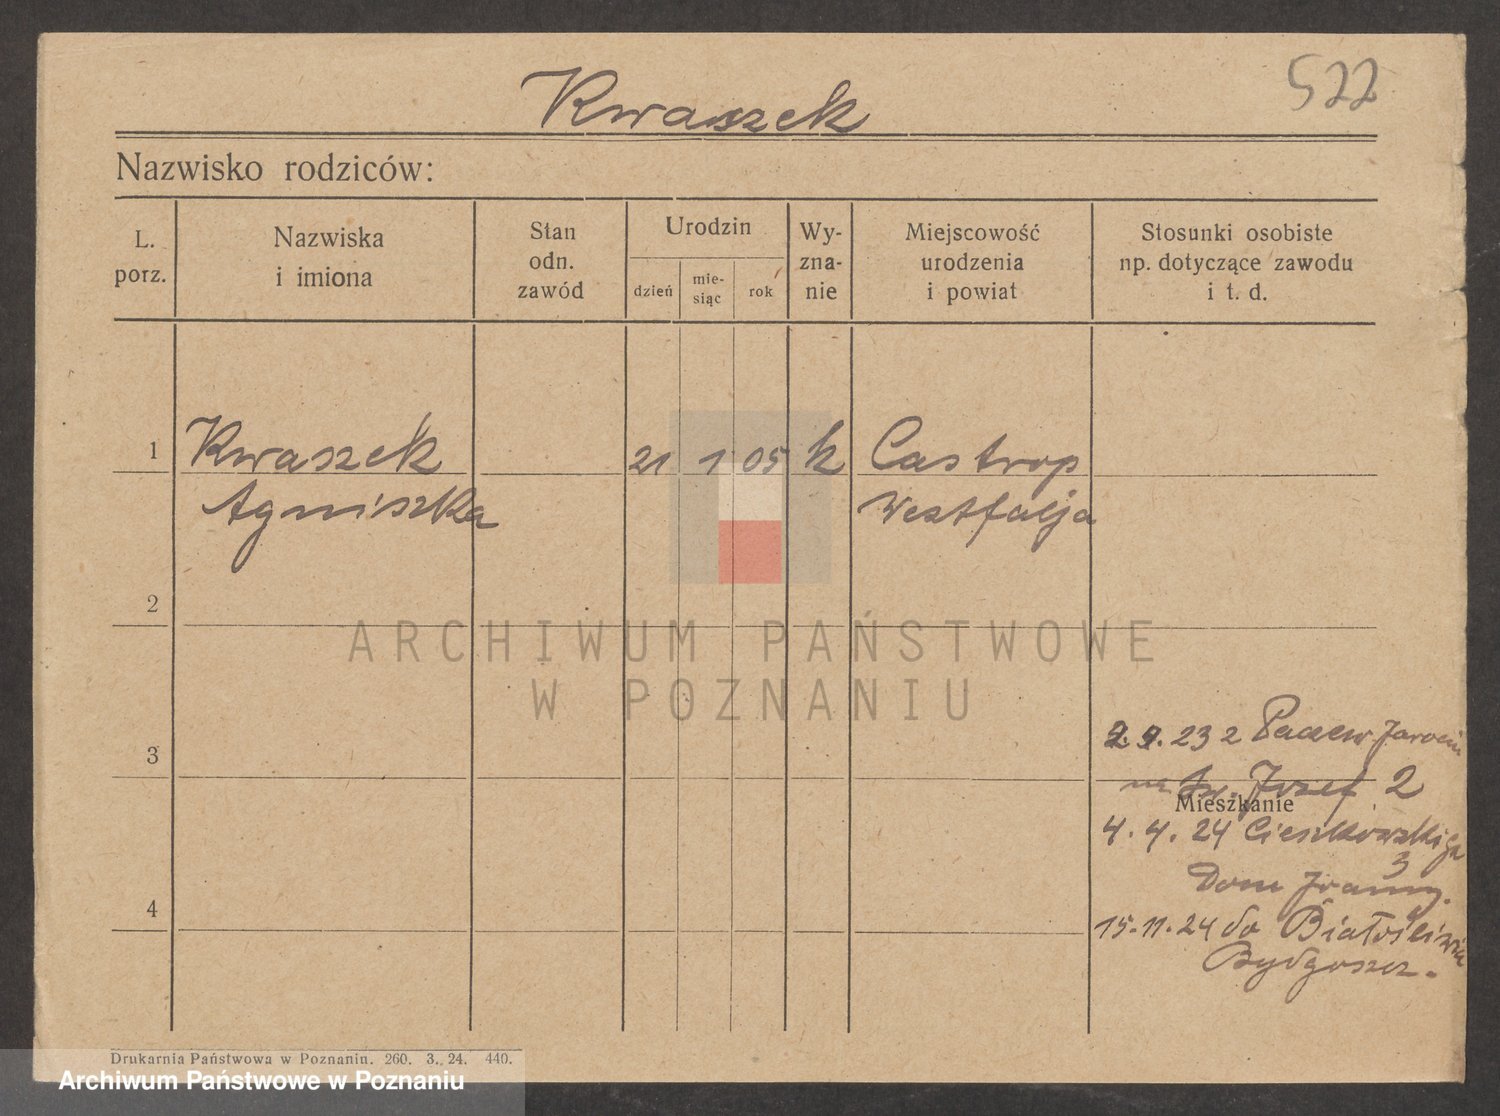 522
Kwaszek
Nazwisko rodziców:
L. porz.
Nazwiska i imiona
Stan odn. zawód
Urodzin
dzień
mie-
siąc
rok
Wy-
zna-
nie
Miejscowość
urodzenia
i powiat
Stosunki osobiste
np. dotyczące zawodu
i t. d.
1 Kwaszek 21 1 05 k Castrop
Agniszka Westfalja
2
ARCHIWUM PAŃSTWOWE
W POZNANIU
23 z Jarocin
3
na Św. Józef 2
Mieszkanie
4. 4. 24 Cieszkowskiga
3
Dom
4
15. 11. 24 do Białośliwia
Bydgoszcz.
Drukarnia Państwowa w Poznaniu. 260. 3. 24. 440.
Archiwum Państwowe w Poznaniu